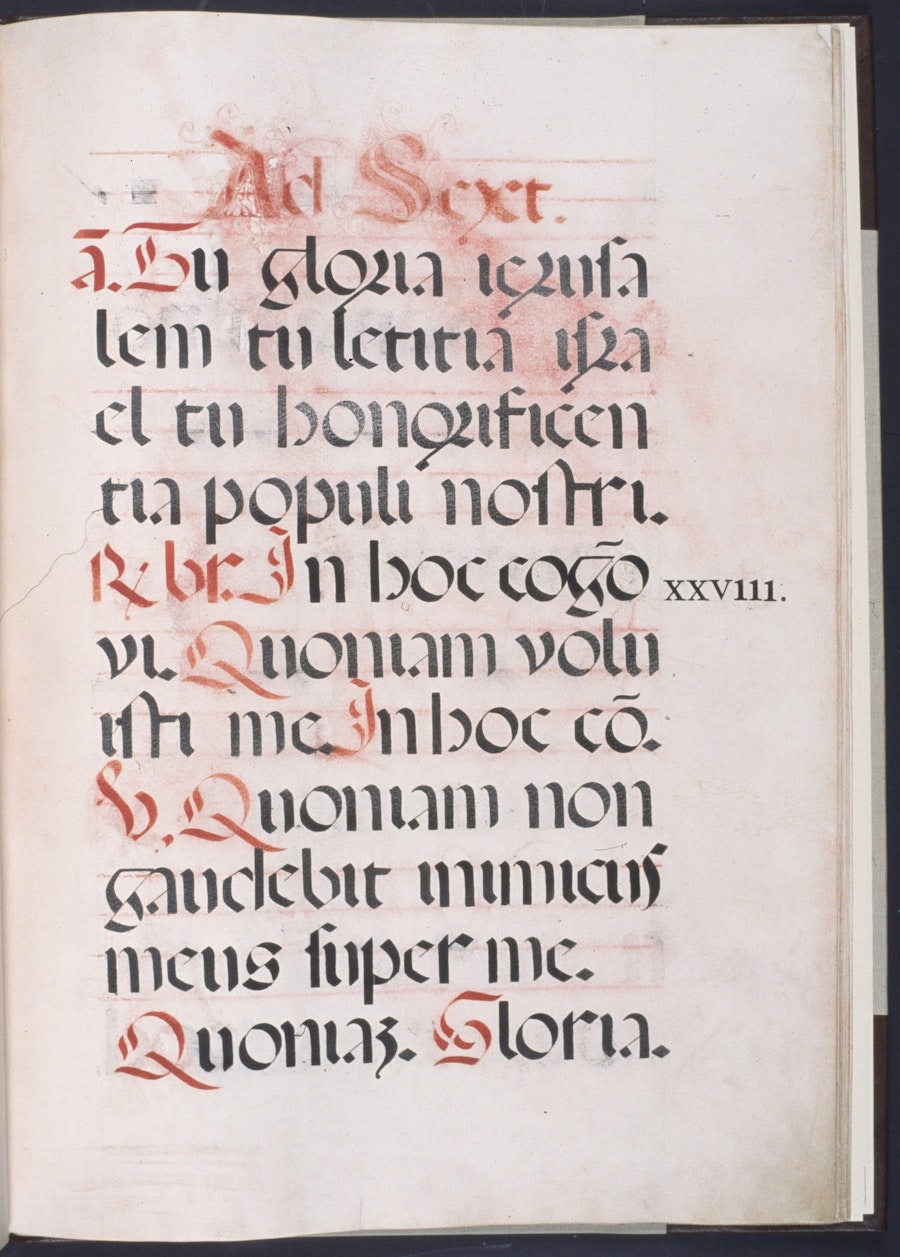 Ad Sext.
ā. Tu gloria ieruſa
lem tu letitia iſra
el tu honorificen
tia populi noſtri.
℟ br. In hoc cog̃o
vi. Quoniam volu
iſti me. In hoc cō.
℣. Quoniam non
gaudebit inimicus
meus ſuper me.
Quoniaꝫ. Gloria.
XXVIII.